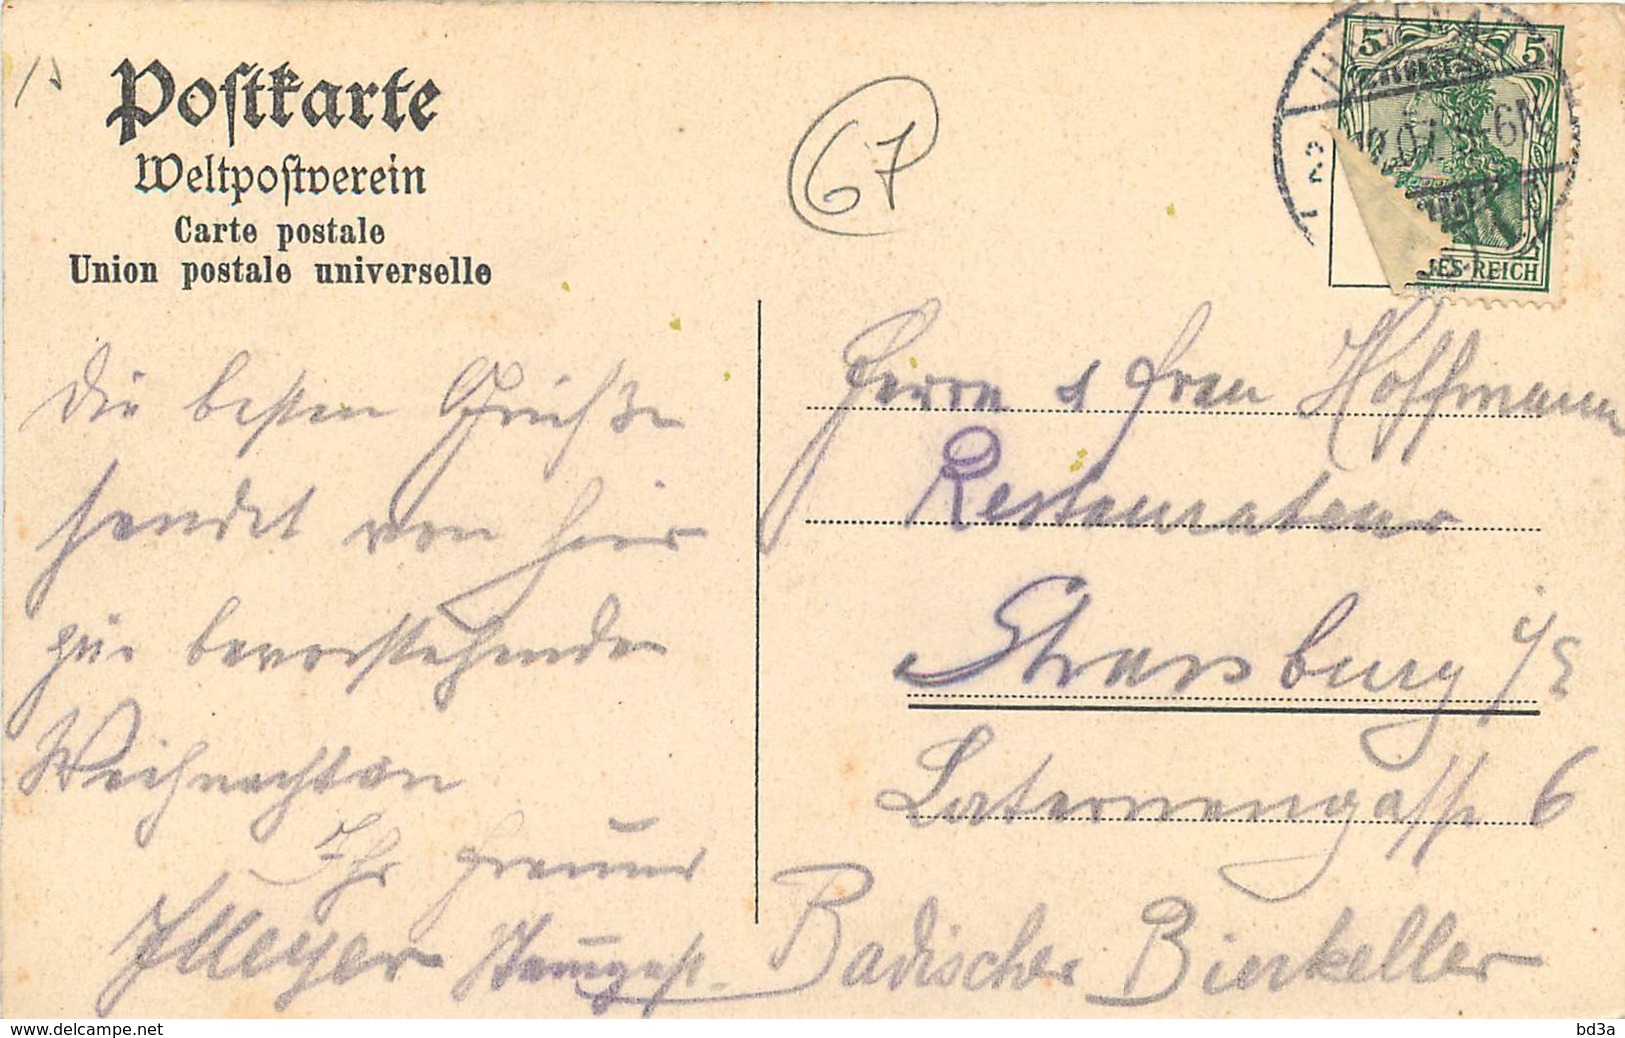 Postkarte
Weltpostverein
Carte postale
Union postale universelle
67
5 5
12.07. 5-6N
REICH
Die besten Grüße
sendet von hier
zur bevorstehenden
Weihnachten
Ihr Freund
Meyer Stammgast.
Herrn & Frau Hoffmann
Restaurateur
Strassburg i/E
Laternengasse 6
Badischer Bierkeller
www.delcampe.net
bd3a